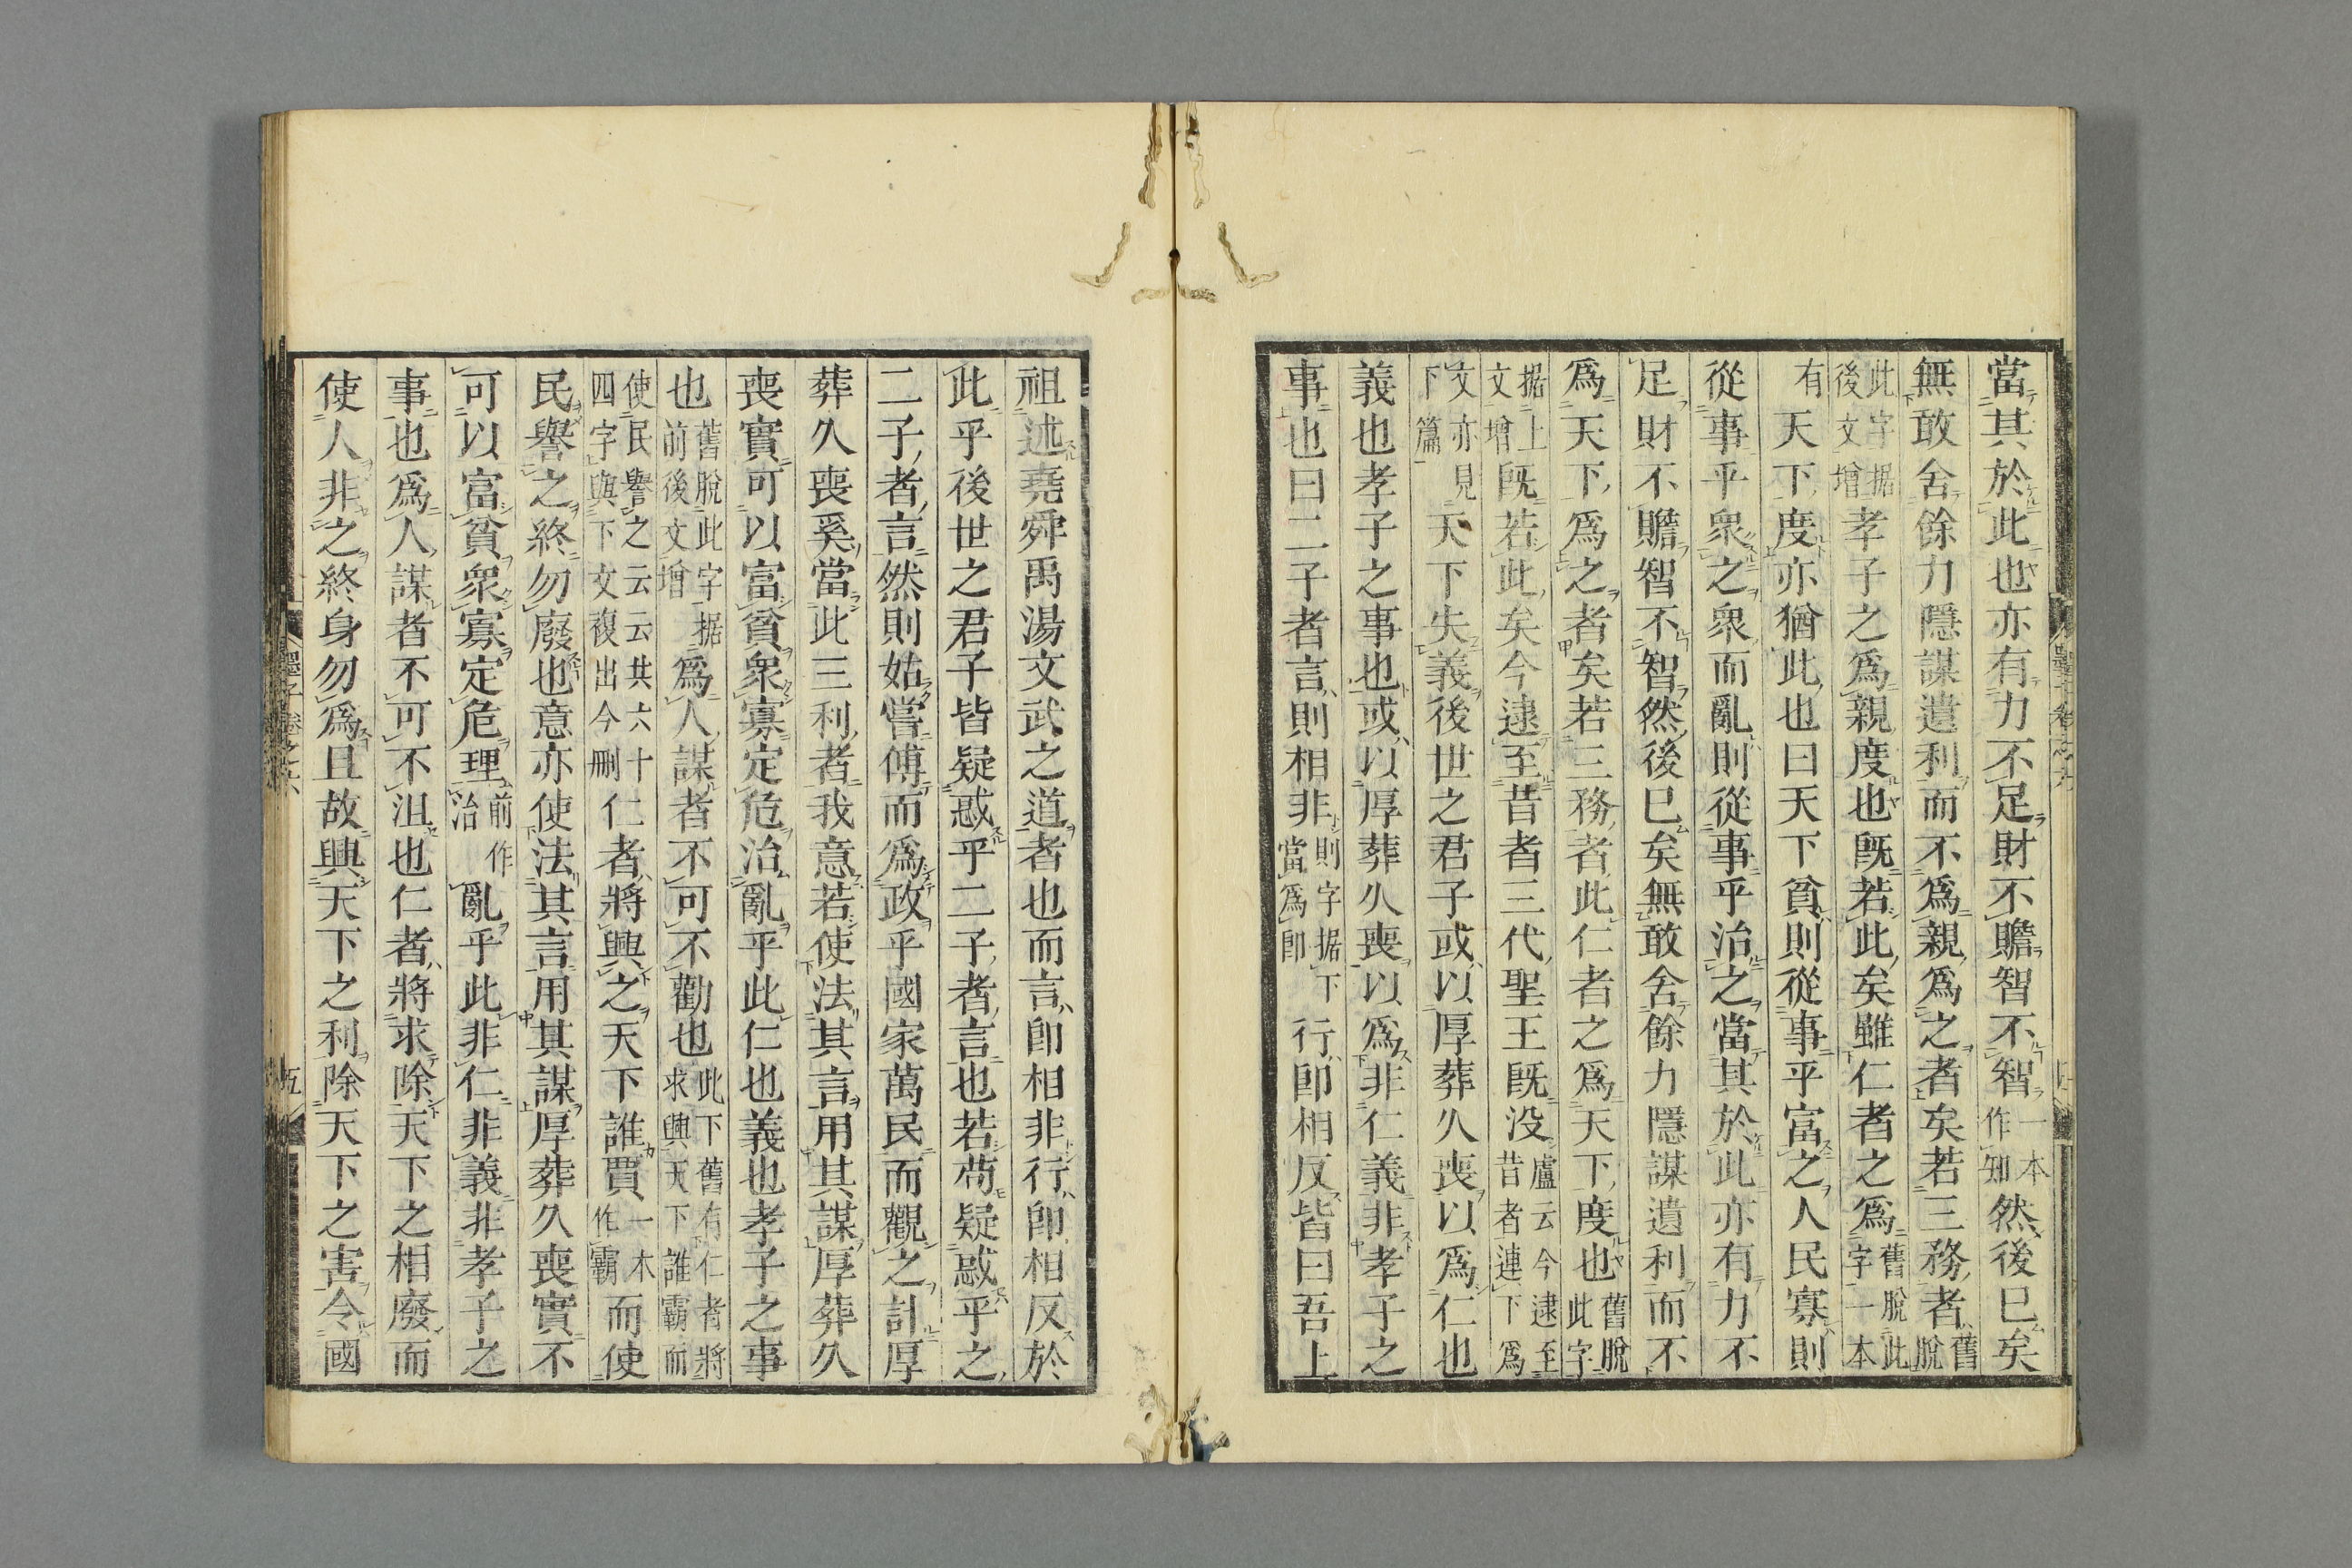 當其於此也亦有力不足財不贍智不智一本作知然後已矣
無敢舍餘力隱謀遺利而不爲親爲之者矣若三務者舊脫
此字据後文增孝子之爲親度也既若此矣雖仁者之爲舊脫此字一本
有天下度亦猶此也曰天下貧則從事乎富之人民寡則
從事乎衆之衆而亂則從事乎治之當其於此亦有力不
足財不贍智不智然後已矣無敢舍餘力隱謀遺利而不
爲天下爲之者矣若三務者此仁者之爲天下度也舊脫此字
据上文增既若此矣今逮至昔者三代聖王既没盧云今逮至昔者連下爲
文亦見下篇天下失義後世之君子或以厚葬久喪以爲仁也
義也孝子之事也或以厚葬久喪以爲非仁義非孝子之
事也曰二子者言則相非則字据下當爲卽行卽相反皆曰吾上
祖述堯舜禹湯文武之道者也而言卽相非行卽相反於
此乎後世之君子皆疑惑乎二子者言也若苟疑惑乎之
二子者言然則姑嘗傅而爲政乎國家萬民而觀之計厚
葬久喪奚當此三利者我意若使法其言用其謀厚葬久
喪實可以富貧衆寡定危治亂乎此仁也義也孝子之事
也舊脫此字据前後文增爲人謀者不可不勸也此下舊有仁者將求興天下誰霸而
使民譽之云云共六十四字與下文複出今刪仁者將興之天下誰賈一本作霸而使
民譽之終勿廢也意亦使法其言用其謀厚葬久喪實不
可以富貧衆寡定危理前作治亂乎此非仁非義非孝子之
事也爲人謀者不可不沮也仁者將求除天下之相廢而
使人非之終身勿爲且故興天下之利除天下之害令國
墨子卷之六
五